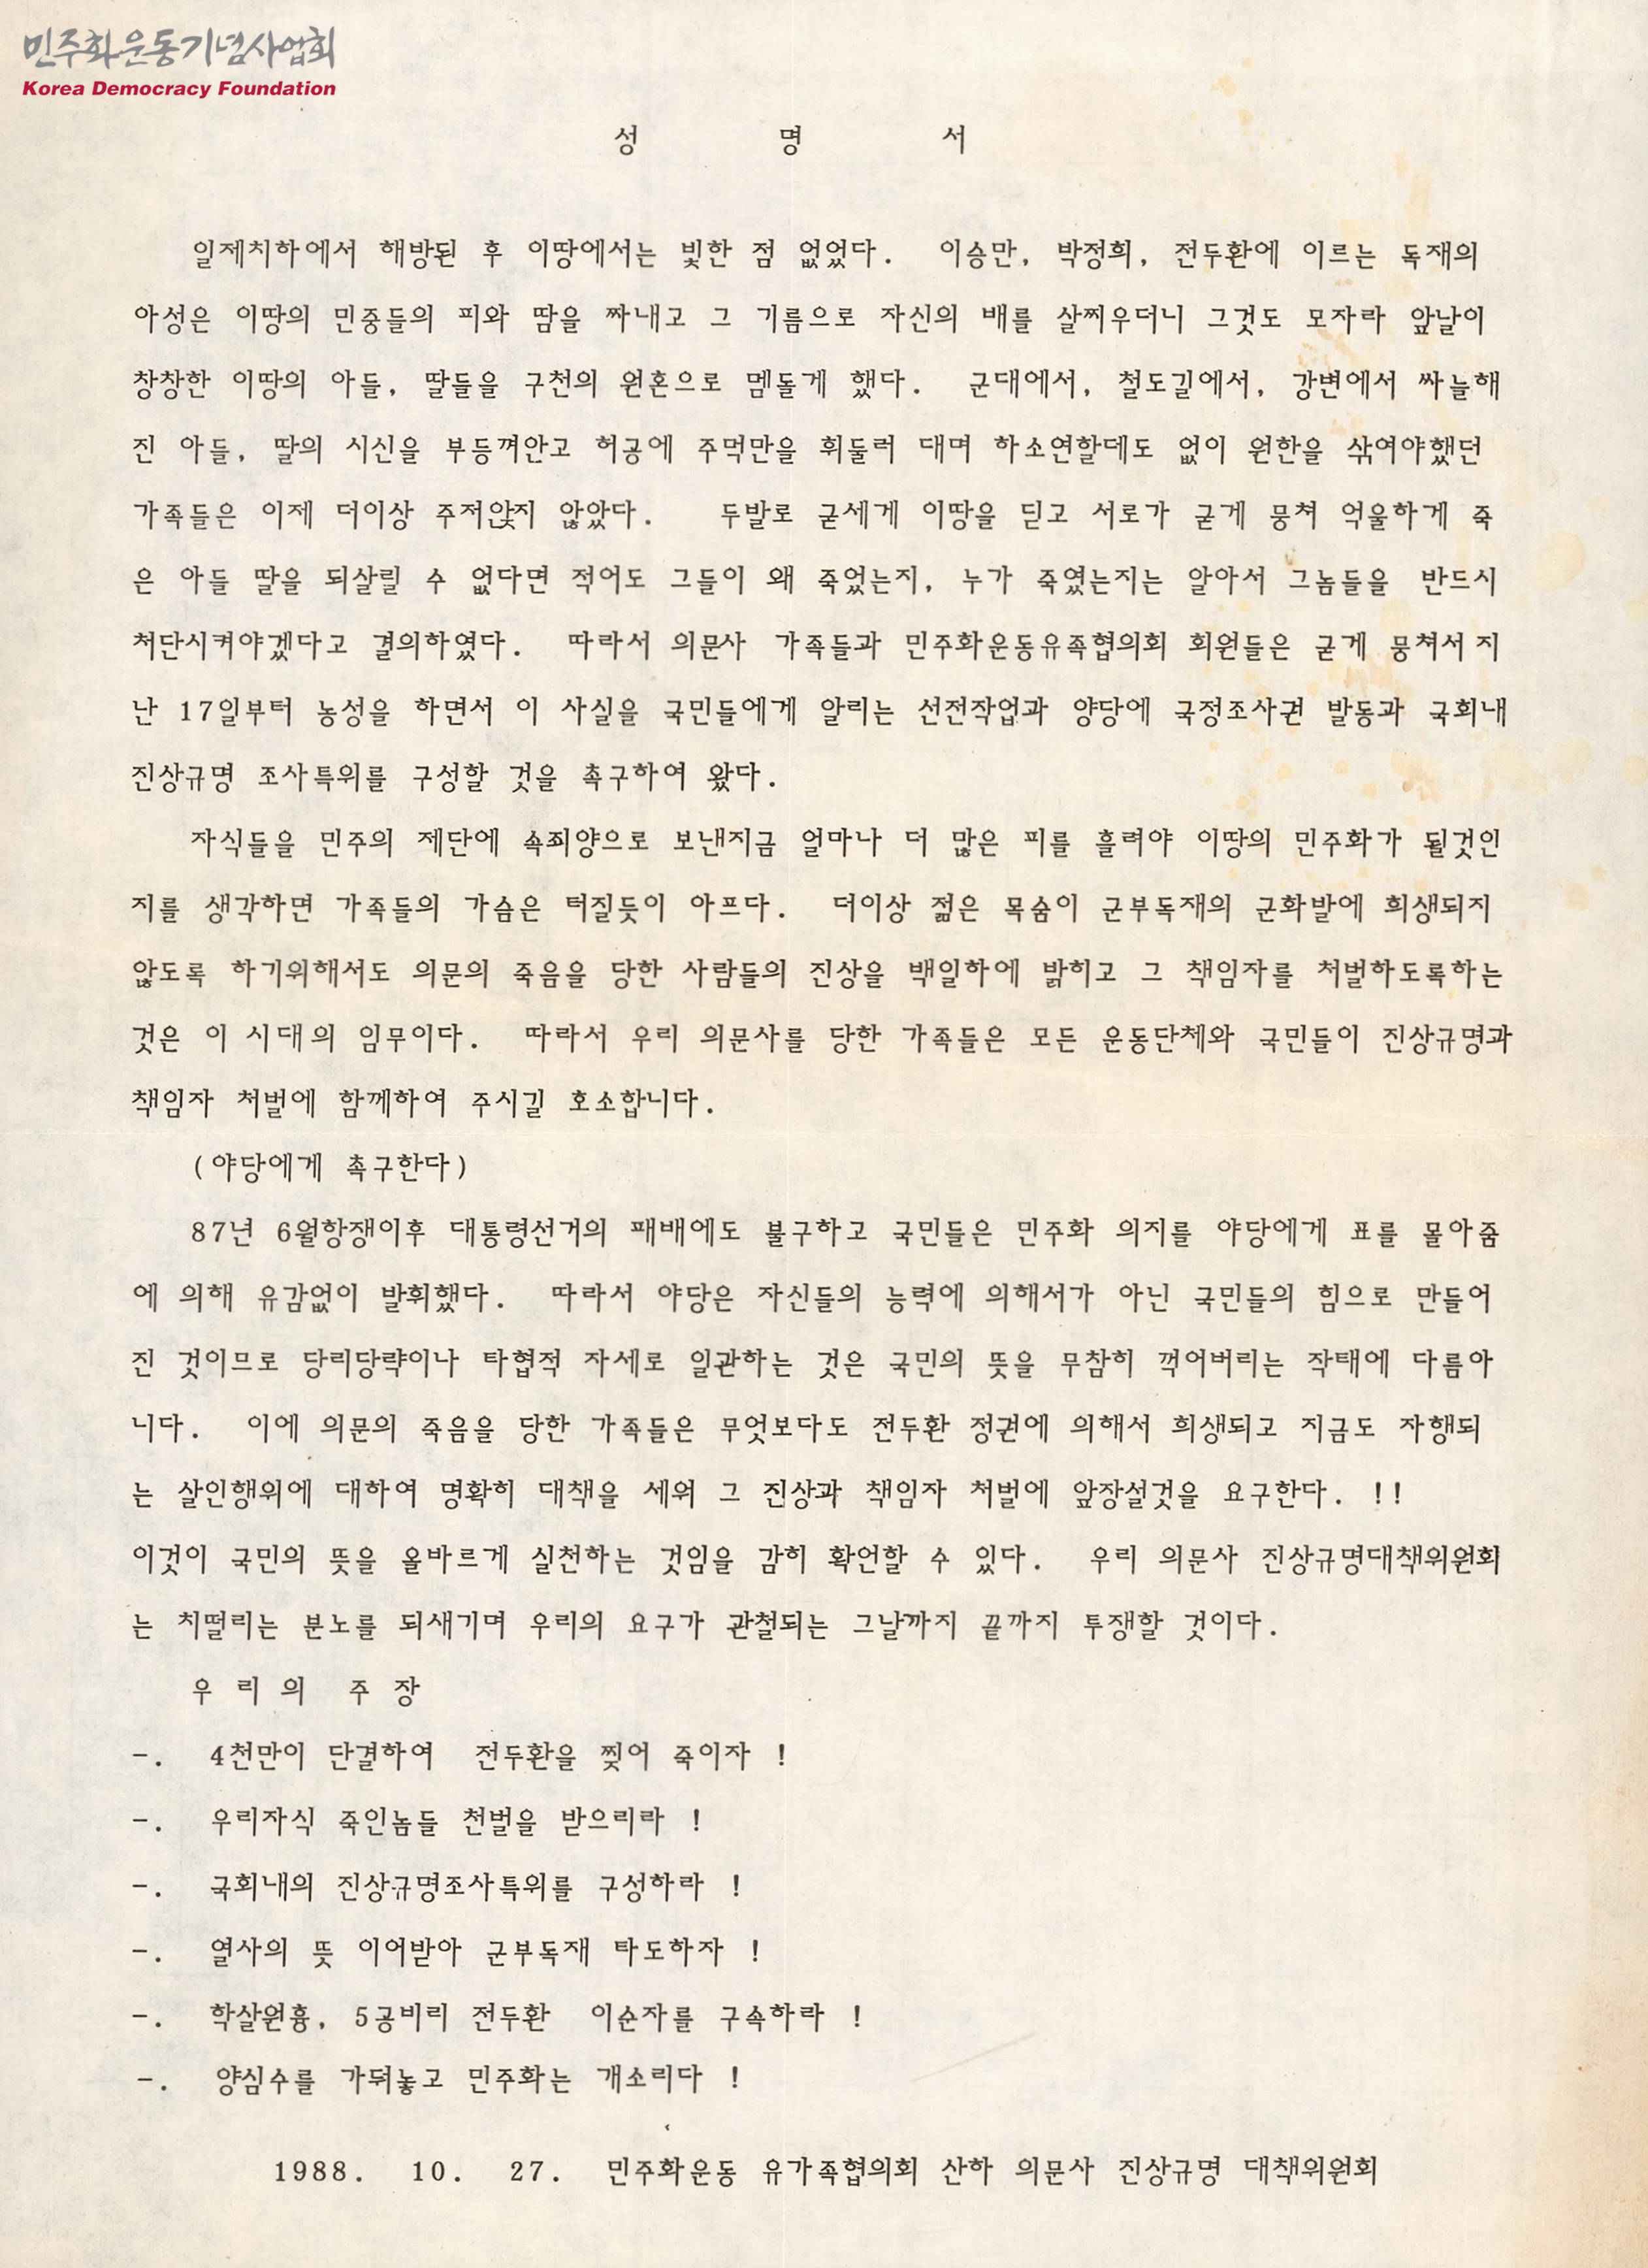 민주화운동기념사업회
Korea Democracy Foundation
성 명 서
일제치하에서 해방된 후 이땅에서는 빛한 점 없었다. 이승만, 박정희, 전두환에 이르는 독재의
아성은 이땅의 민중들의 피와 땀을 짜내고 그 기름으로 자신의 배를 살찌우더니 그것도 모자라 앞날이
창창한 이땅의 아들, 딸들을 구천의 원혼으로 멤돌게 했다. 군대에서, 철도길에서, 강변에서 싸늘해
진 아들, 딸의 시신을 부등껴안고 허공에 주먹만을 휘둘러 대며 하소연할데도 없이 원한을 삮여야했던
가족들은 이제 더이상 주저앉지 않았다. 두발로 굳세게 이땅을 딛고 서로가 굳게 뭉쳐 억울하게 죽
은 아들 딸을 되살릴 수 없다면 적어도 그들이 왜 죽었는지, 누가 죽였는지는 알아서 그놈들을 반드시
처단시켜야겠다고 결의하였다. 따라서 의문사 가족들과 민주화운동유족협의회 회원들은 굳게 뭉쳐서 지
난 17일부터 농성을 하면서 이 사실을 국민들에게 알리는 선전작업과 양당에 국정조사권 발동과 국회내
진상규명 조사특위를 구성할 것을 촉구하여 왔다.
자식들을 민주의 제단에 속죄양으로 보낸지금 얼마나 더 많은 피를 흘려야 이땅의 민주화가 될것인
지를 생각하면 가족들의 가슴은 터질듯이 아프다. 더이상 젊은 목숨이 군부독재의 군화발에 희생되지
않도록 하기위해서도 의문의 죽음을 당한 사람들의 진상을 백일하에 밝히고 그 책임자를 처벌하도록하는
것은 이 시대의 임무이다. 따라서 우리 의문사를 당한 가족들은 모든 운동단체와 국민들이 진상규명과
책임자 처벌에 함께하여 주시길 호소합니다.
(야당에게 촉구한다)
87년 6월항쟁이후 대통령선거의 패배에도 불구하고 국민들은 민주화 의지를 야당에게 표를 몰아줌
에 의해 유감없이 발휘했다. 따라서 야당은 자신들의 능력에 의해서가 아닌 국민들의 힘으로 만들어
진 것이므로 당리당략이나 타협적 자세로 일관하는 것은 국민의 뜻을 무참히 꺽어버리는 작태에 다름아
니다. 이에 의문의 죽음을 당한 가족들은 무엇보다도 전두환 정권에 의해서 희생되고 지금도 자행되
는 살인행위에 대하여 명확히 대책을 세워 그 진상과 책임자 처벌에 앞장설것을 요구한다. !!
이것이 국민의 뜻을 올바르게 실천하는 것임을 감히 확언할 수 있다. 우리 의문사 진상규명대책위원회
는 치떨리는 분노를 되새기며 우리의 요구가 관철되는 그날까지 끝까지 투쟁할 것이다.
우 리 의 주 장
-. 4천만이 단결하여 전두환을 찢어 죽이자 !
-. 우리자식 죽인놈들 천벌을 받으리라 !
-. 국회내의 진상규명조사특위를 구성하라 !
-. 열사의 뜻 이어받아 군부독재 타도하자 !
-. 학살원흉, 5공비리 전두환 이순자를 구속하라 !
-. 양심수를 가둬놓고 민주화는 개소리다 !
1988. 10. 27. 민주화운동 유가족협의회 산하 의문사 진상규명 대책위원회